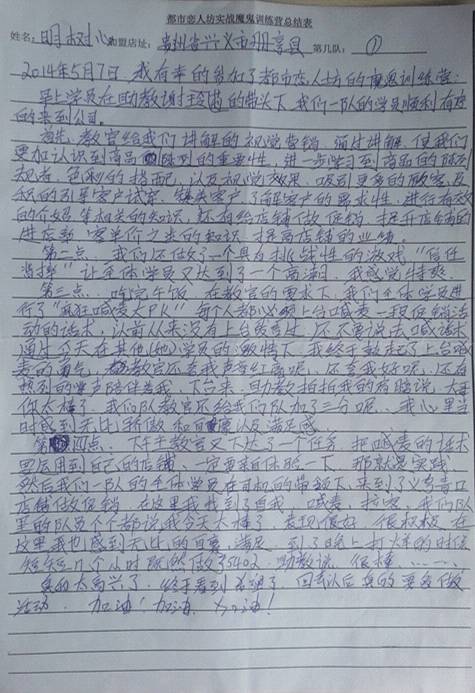 都市恋人坊实战魔鬼训练营总结表
姓名:明树心加盟店址:贵州省兴义市册亨县 第几队:①
2014年5月7日 我有幸的参加了都市恋人坊的魔鬼训练营:
早上学员在助教谢玲的带头下,我们一队的学员顺利有序
的来到公司。
首先,教官给我们讲解的视觉营销,通过讲解,使我们
更加认识到商品陈列的重要性,进一步学习到商品的陈列
规者,色彩的搭配,以及视觉效果,吸引更多的顾客,及
积的引导客户试穿,锁关客户,了解客户的需求性,进行有效
的介绍等相关的知识,还有给店铺做促销,提升店铺的
进店率,客单价之类的知识,提高店铺的业绩。
第二点,我们还做了一个具有挑战性的游戏"信任
背摔"让全体学员又达到了一个高潮,我感觉特爽。
第三点,吃完午饭,在教官的要求下,我们全体学员进
行了"疯狂喊麦大PK"每个人都必须上台喊麦一段促销活
动的话术,以前从来没有上台发言过,还不要说去喊话术
通过今天在其他(她)学员的激情下,我终于鼓起了上台喊
麦的勇气,教官还表我声音红亮呢,还享我好呢,还有
热烈的掌声陪伴着我,下台来,助教拍拍我的肩膀说,大手
你太棒了,我们队教官还给我们队加了三分呢,我心里当
时感到无比骄傲和自豪以及满足感。
第四点,下午教官又下达了一个任务,把喊麦的话术
要运用到自己的店铺,一定要来体验一下,那就是实践
然后我们一队的全体学员在司机的带领下,来到了义乌青口
店铺做促销,在这里我找到了自我,喊麦,拉客,我们队
里的队员个个都说我今天太棒了,表现很好,很积极,在
这里我也感到无比的自豪,满足,到了晚上打烊的时候
短短几个小时既然做了5402,助教说,很棒、……
真的太高兴了,终于看到希望了,回去以后真的要多做
活动,加油!加油,加油!